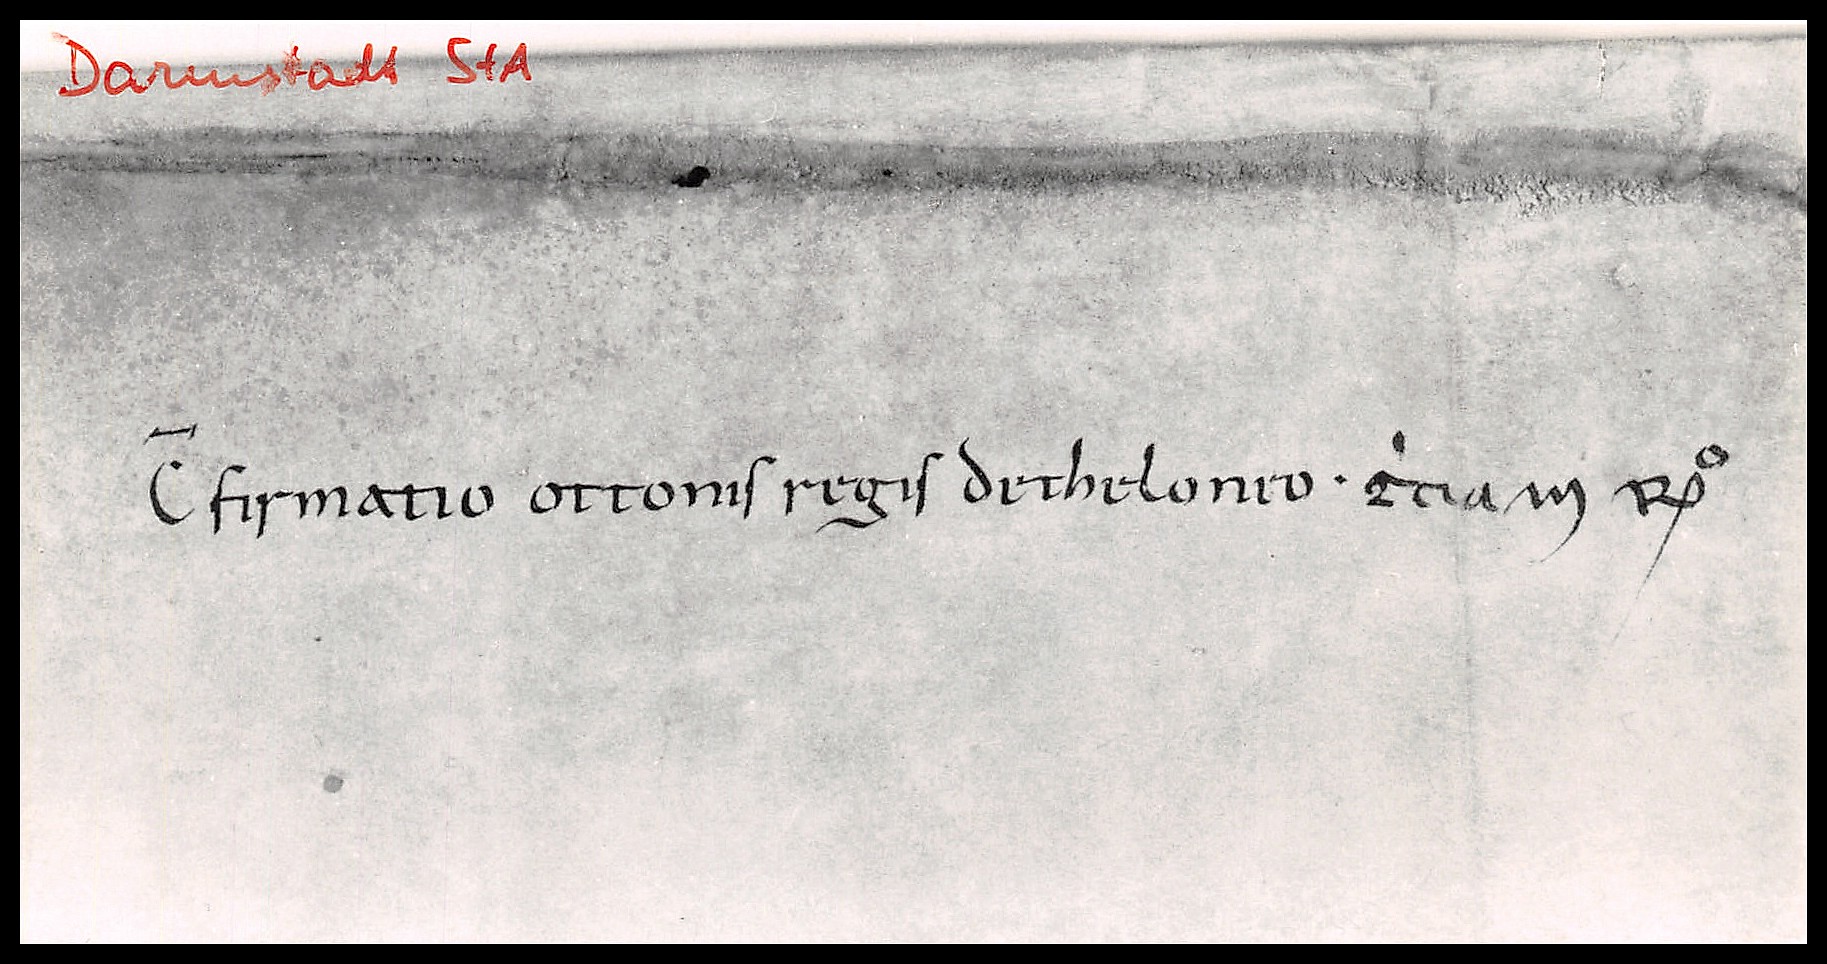 Darmstadt StA
C̄firmatio ottonis regis detheloneo ·